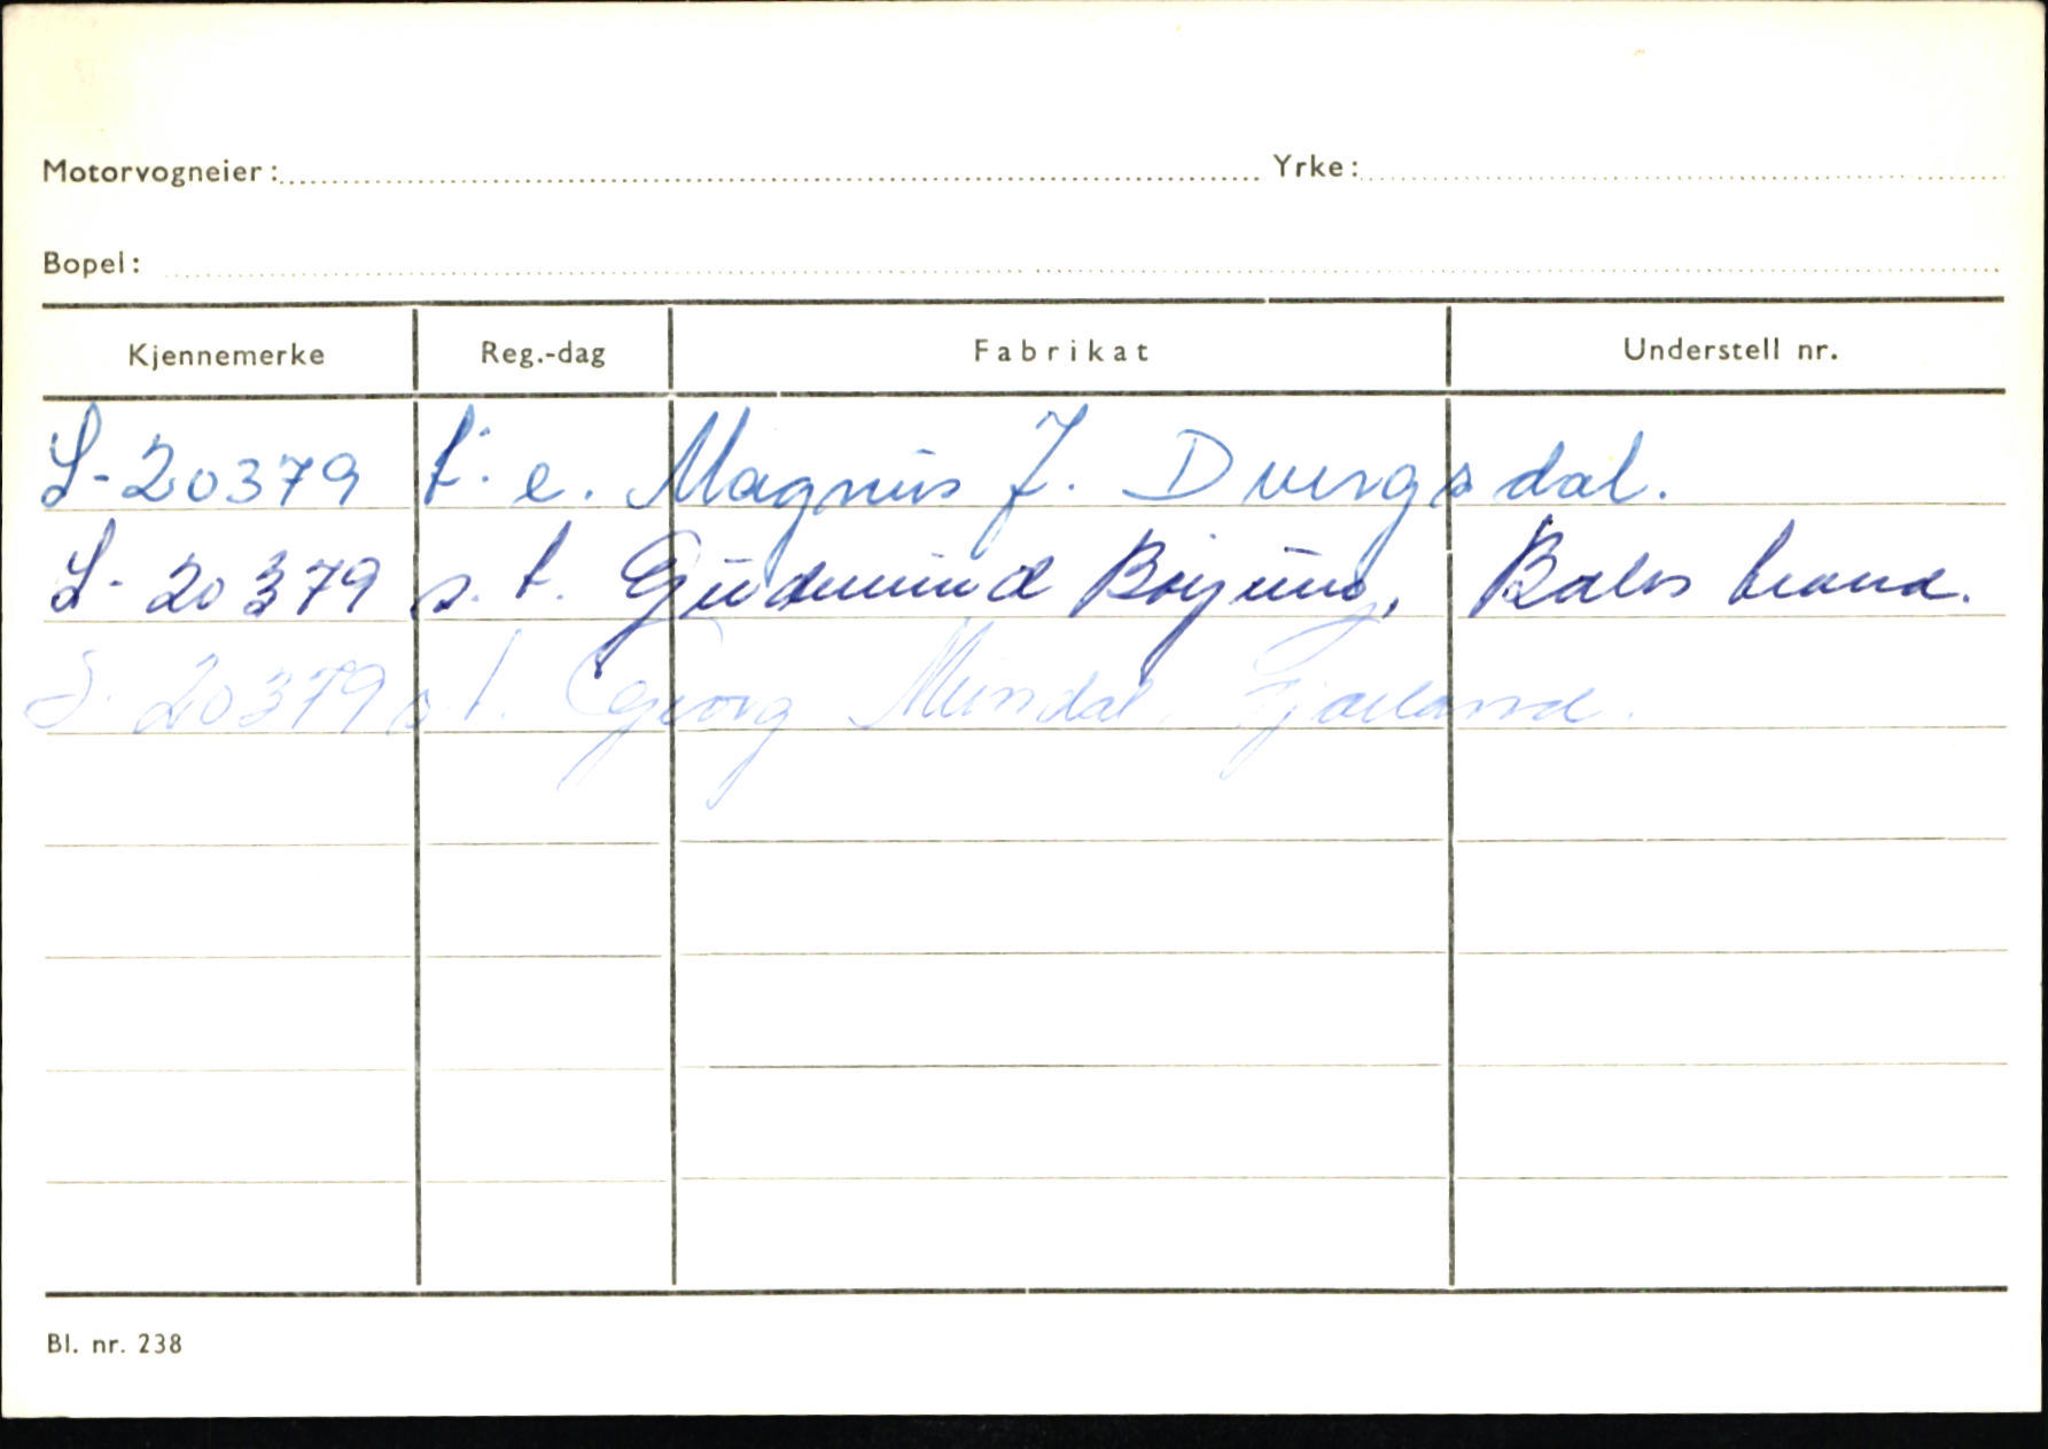 Motorvogneier: Yrke:
Bopel:
Kjennemerke Reg.-dag Fabrikat Understell nr.
S-20379 t. e. Magnus J. Dvergsdal.
S-20379 s. t. Gudmund Bøyum, Balestrand.
S-20379 s. t. Georg Mundal, Fjærland.
Bl. nr. 238